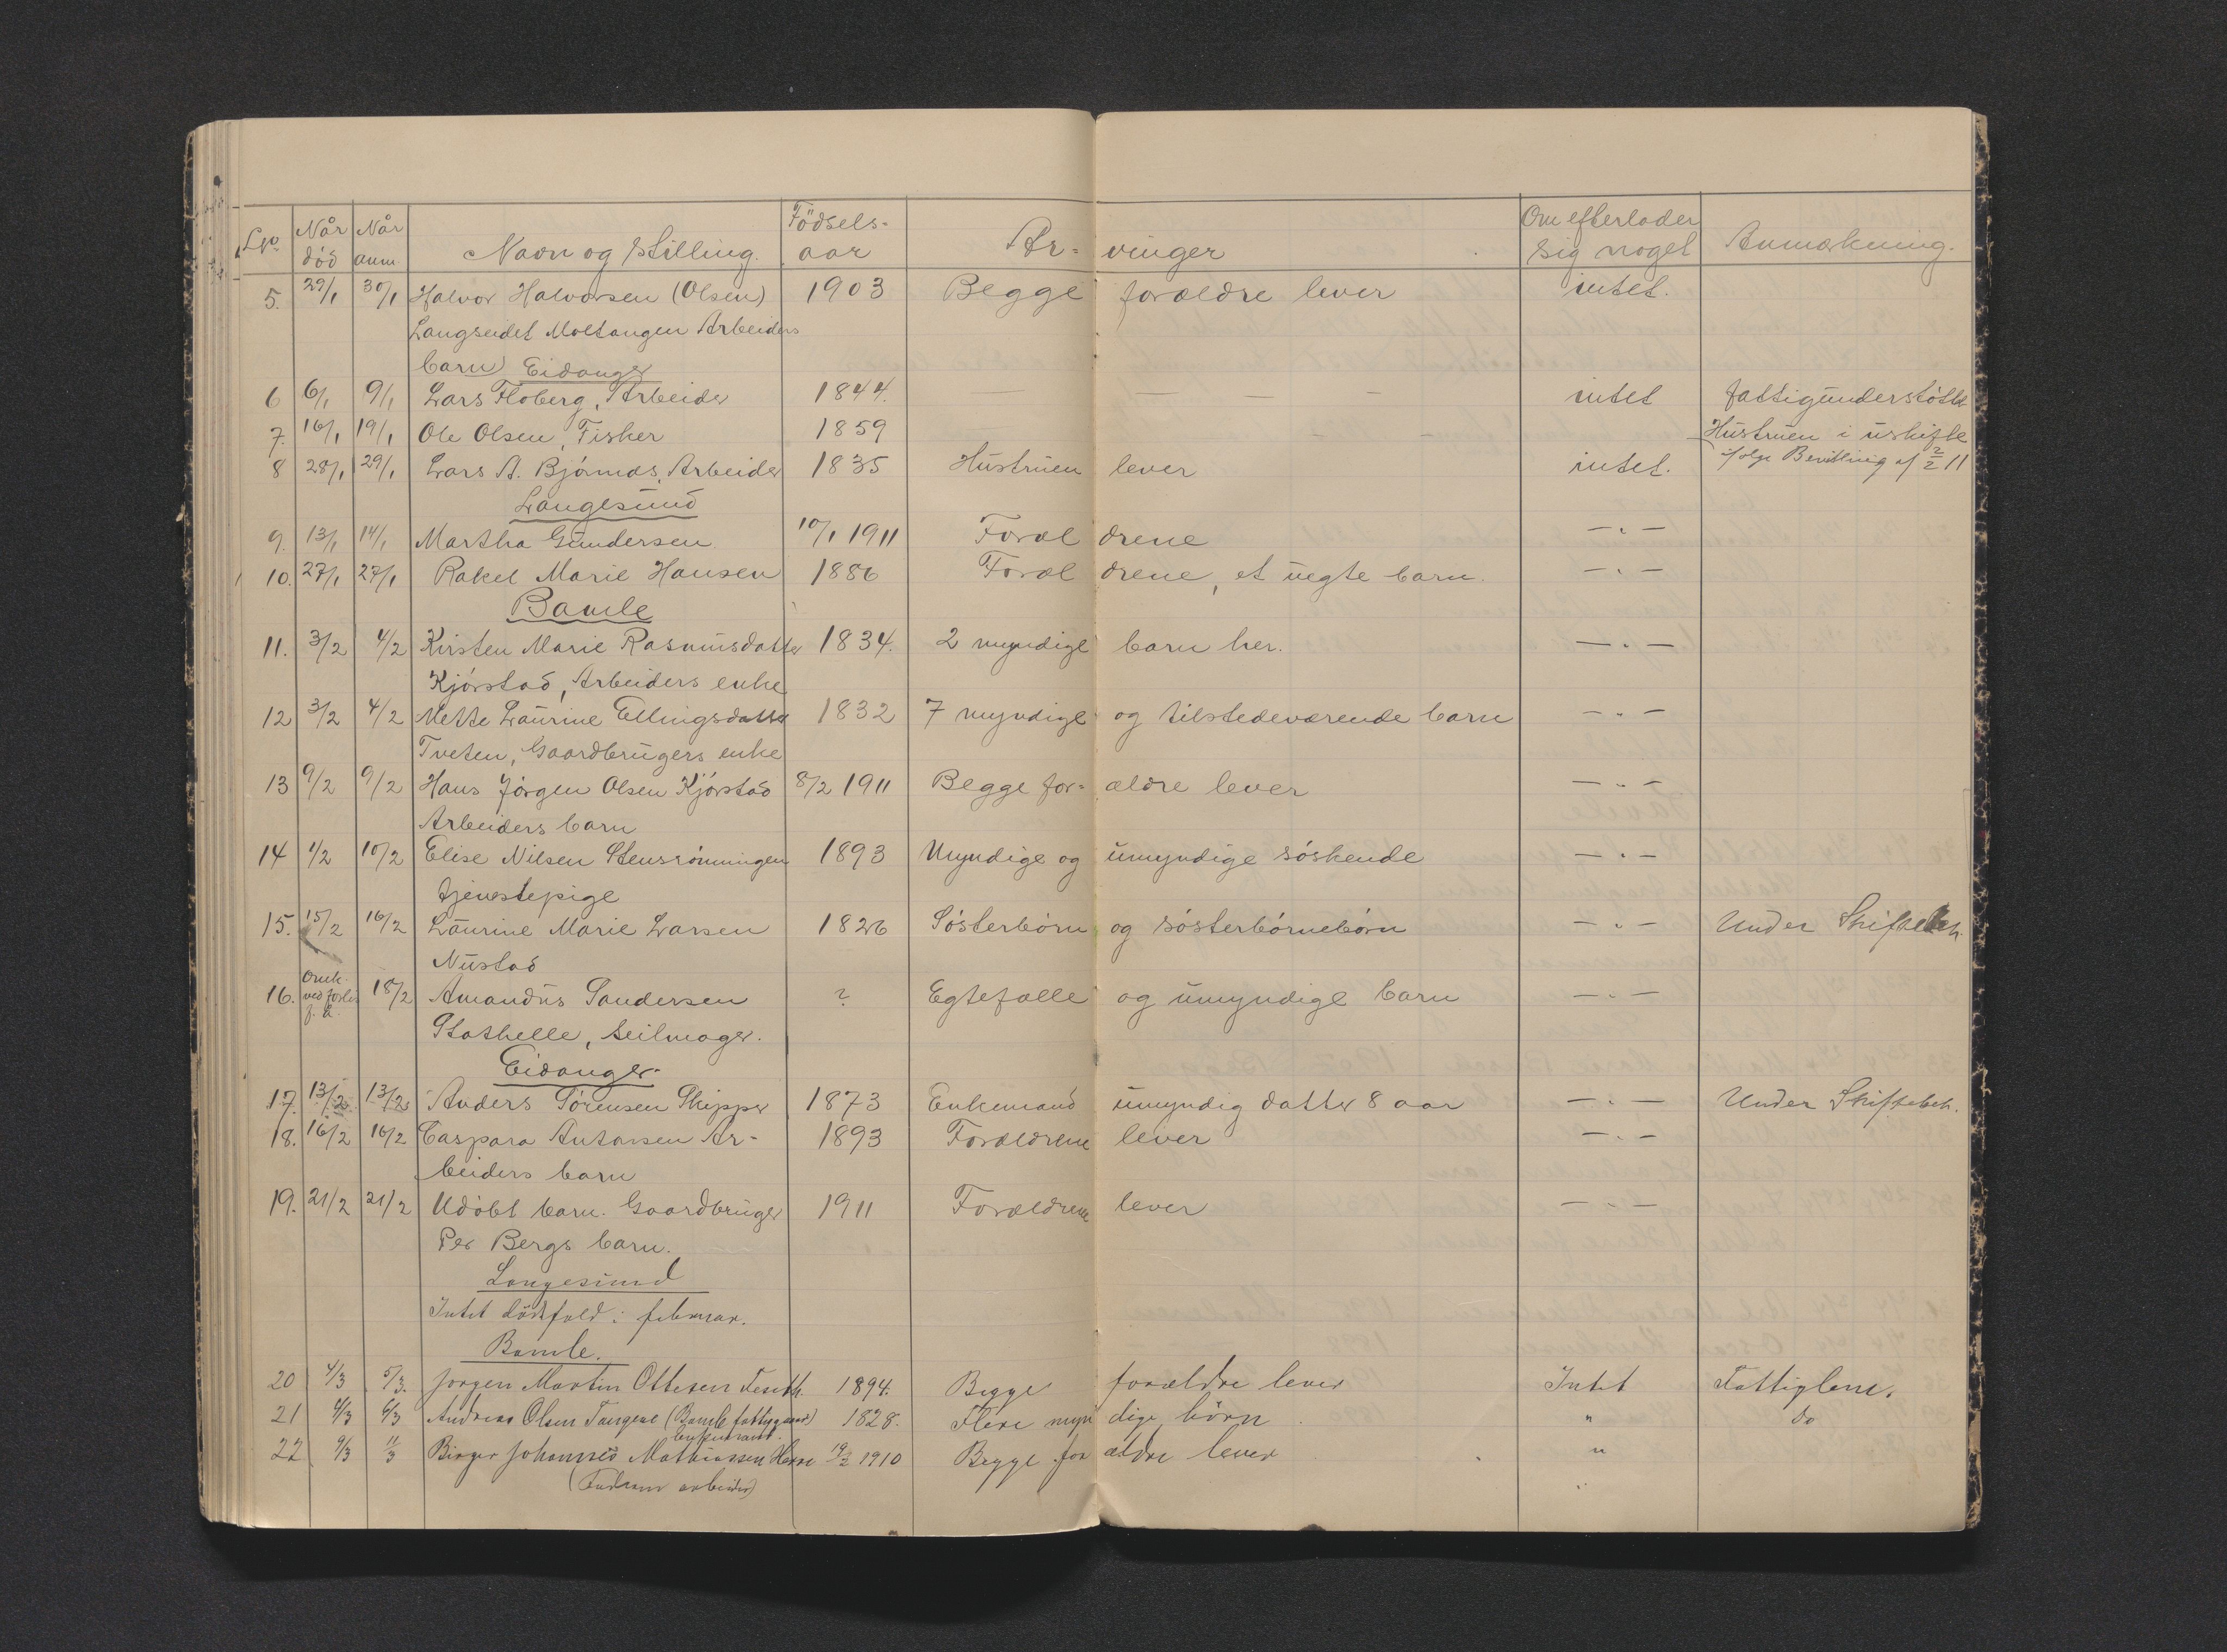 Lno Når død Når anm Navn og Stilling. Födsels-aar Ar-vinger Om efterlader sig noget Anmærkning.
5. 29/1 30/1 Halvor Halvorsen (Olsen) 1903 Begge forældre lever intet.
Langseidet Moltangen Arbeiders
barn) Eidanger
6 6/1 9/1 Lars Floberg, Arbeider 1844. — — — — intet fattigunderstöttet
7. 16/1 19/1 Ole Olsen, Fisker 1859 - - Hustruen i uskifte
8 28/1 29/1 Lars A. Björnnæs, Arbeider 1835 Hustruen lever intet. ifölge Bevilling af 2/2 11
Langesund
9. 13/1 14/1 Martha Gundersen 10/1 1911 Foræl drene — „ —
10. 27/1 27/1 Rakel Marie Hansen 1886 Foræl drene, et uegte barn. — „ —
Bamle
11. 3/2 4/2 Kirsten Marie Rasmusdatter 1834. 2 myndige barn her. — „ —
Kjörstad, Arbeiders enke
12 3/2 4/2 Mette Laurine Ellingsdatter 1832 7 myndige og tilstedeværende barn — „ —
Tveten, Gaardbrugers enke
13 9/2 9/2 Hans Jörgen Olsen Kjörstad 8/2 1911 Begge for- ældre lever — „ —
Arbeiders barn
14 1/2 10/2 Elise Nilsen Stensrönningen 1893 Myndige og umyndige söskende — „ —
tjenestepige
15. 15/2 16/2 Laurine Marie Larsen 1826 Sösterbörn og sösterbörnebörn — „ — Under Skiftebeh.
Nustad
16. Omk. ved forlis f. a. 18/2 Amandus Sandersen ? Egtefælle og umyndige barn — „ —
Stathelle, seilmager.
Eidanger
17. 13/2 13/2 Anders Sörensen Skipper 1873 Enkemand umyndig datter 8 aar — „ — Under Skiftebeh.
18. 16/2 16/2 Caspara Antonsen Ar- 1893 Forældrene lever — „ —
beiders barn
19. 21/2 21/2 Udöbt barn. Gaardbruger 1911 Forældrene lever — „ —
Per Bergs barn.
Langesund
Intet dödsfald i februar.
Bamle.
20 4/3 5/3. Jörgen Martin Ottesen 1894. Begge forældre lever Intet Fattiglem.
21 4/3 6/3 Andreas Olsen Tangene (Bamle fattiggaard) 1828. Flere myn dige börn „ do
22 9/3 11/3 Birger Johannes Mathiassen Herre 19/2 1910 Begge for ældre lever „